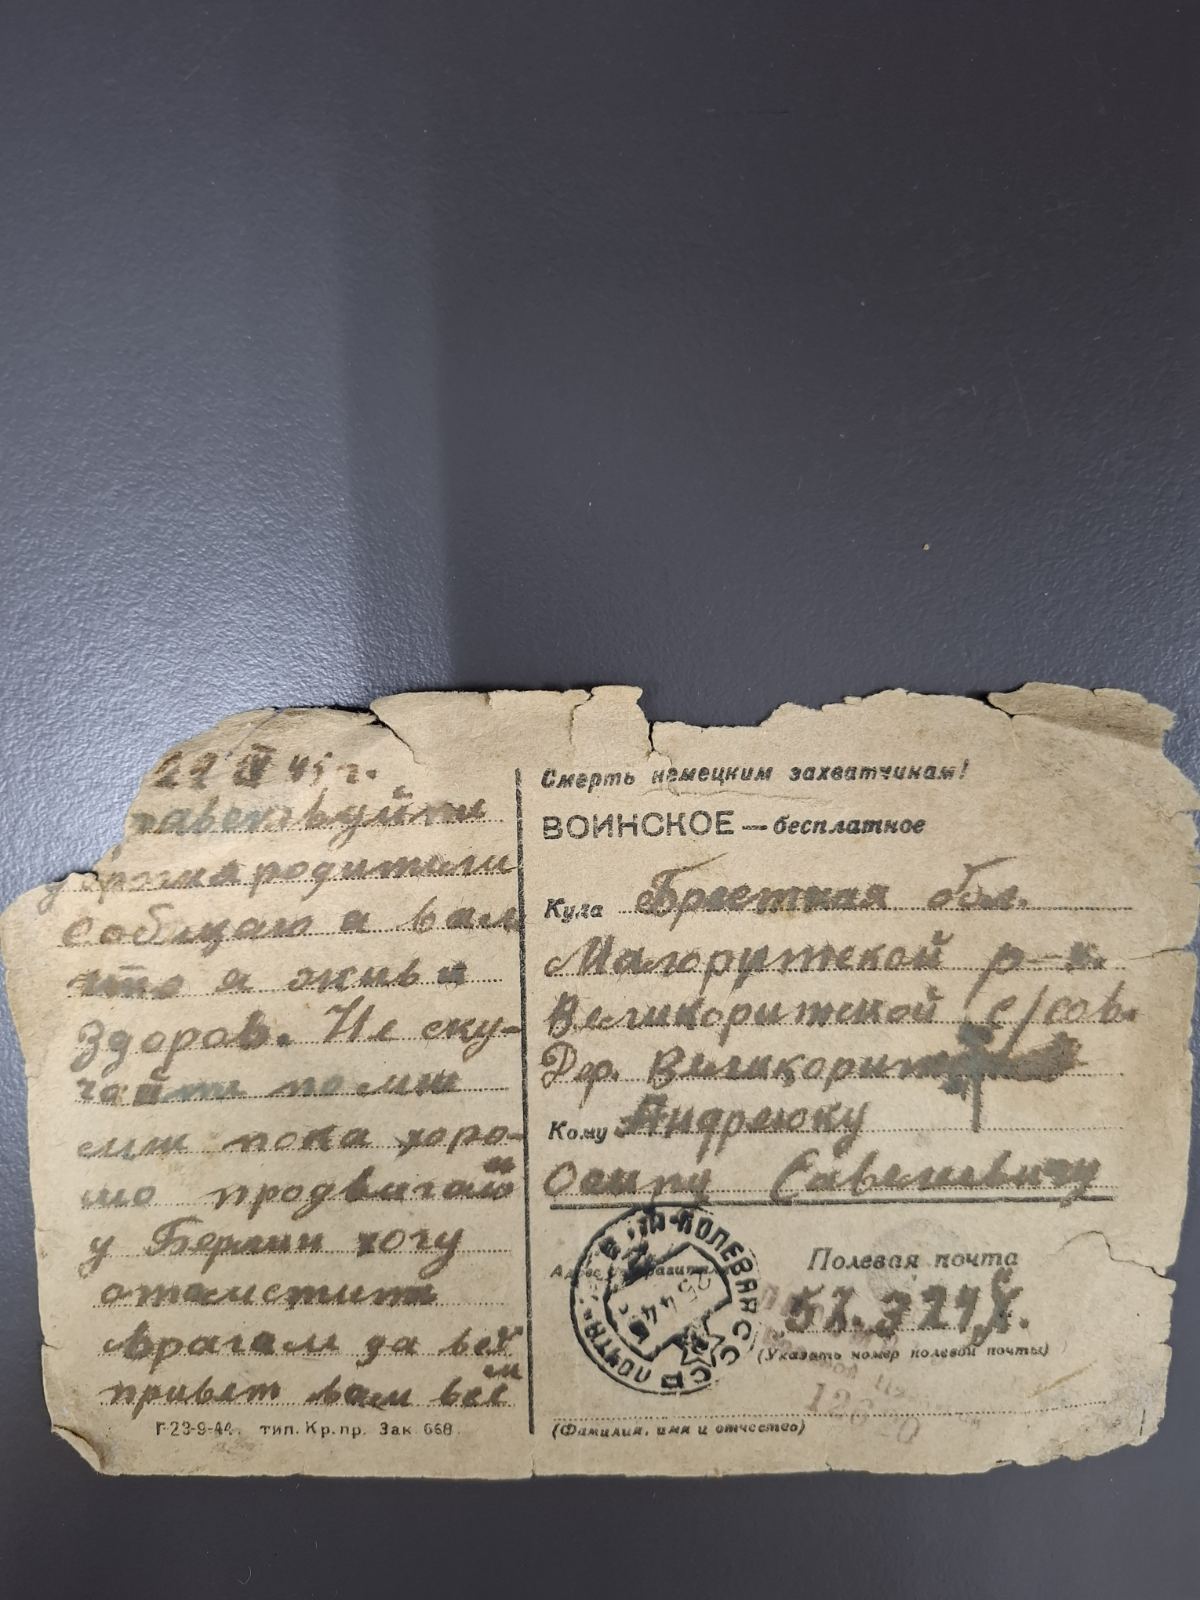 22 IV 45 г.
равствуйти
дорогиа родители
Сообщаю я вам
што я жив и
здоров. Не ску-
чайти по мне
емж пока хоро-
шо продвигаюй
у Берлин хочу
отомстити
врагам да всех
привет вам всем
Г-23-9-44. тип. Кр. пр. Зак. 668.
Смерть немецким захватчикам!
ВОИНСКОЕ — бесплатное
Куда Бресткая обл.
Малорутской р-н.
Великоритской с/сов.
Дер. Великорит
Кому Андреюку
Осипу Савельевичу
ПОЛЕВАЯ ПОЧТА СССР
25 4 45
Полевая почта
(Указать номер полевой почты)
(Фамилия, имя и отчество)